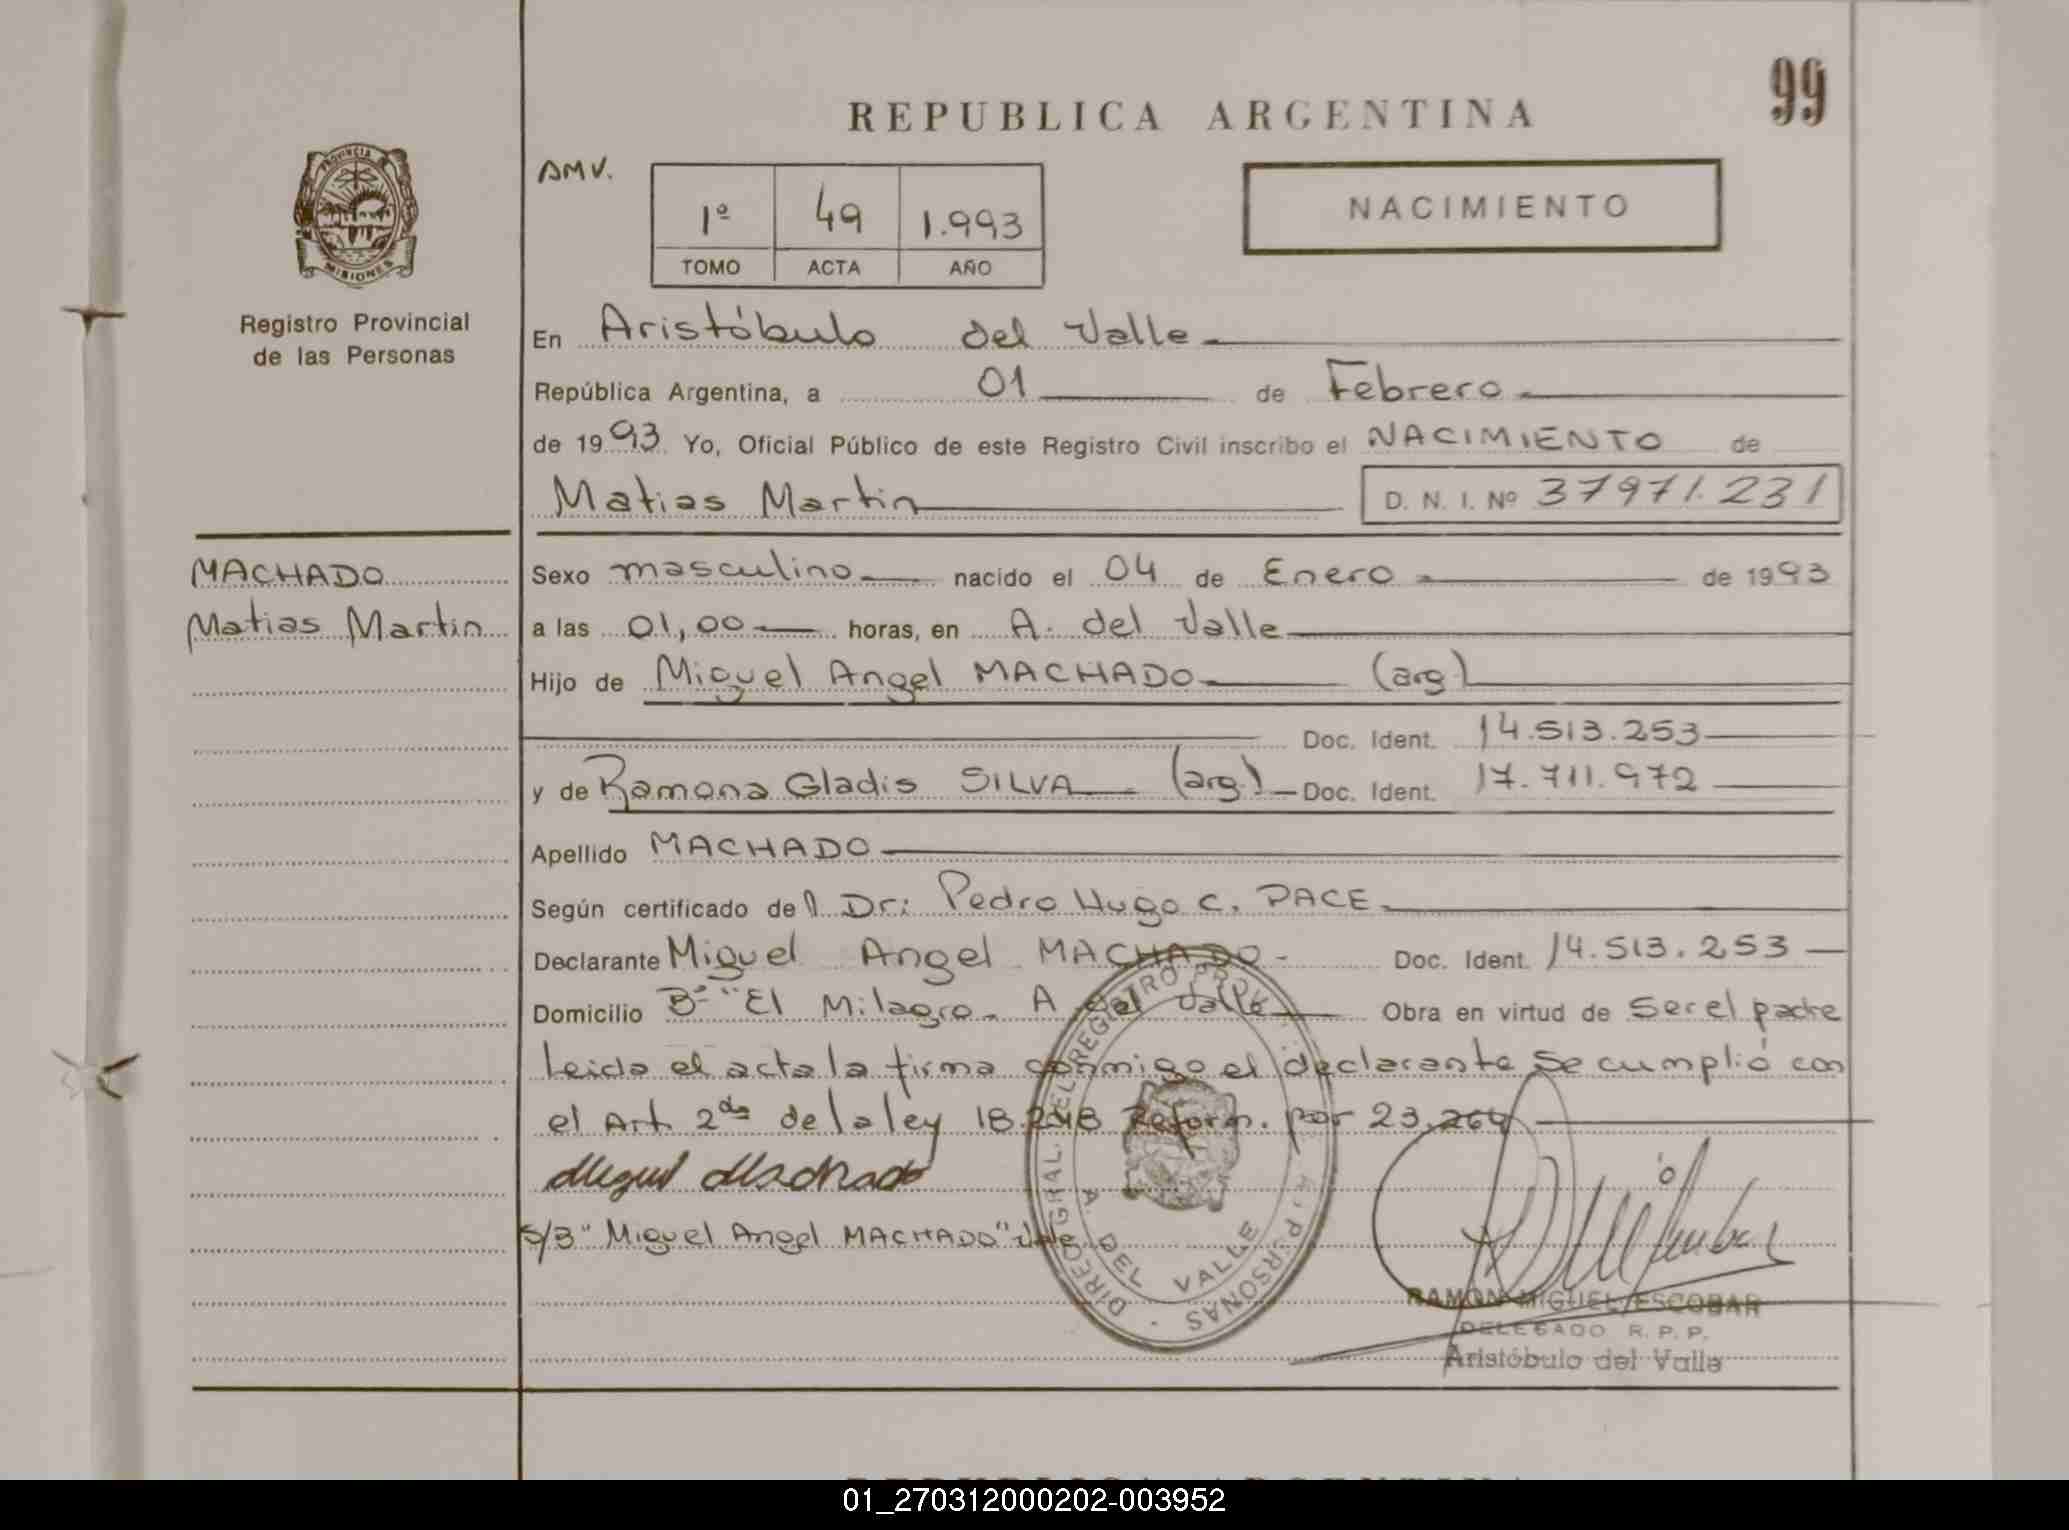 99
REPUBLICA ARGENTINA
AMV.
1º 49 1.993
TOMO ACTA AÑO
NACIMIENTO
PROVINCIA
MISIONES
Registro Provincial
de las Personas
En Aristóbulo del Valle
República Argentina, a 01 de Febrero
de 1993 Yo, Oficial Público de este Registro Civil inscribo el NACIMIENTO de
Matias Martin D. N. I. Nº 37971.231
MACHADO
Matias Martin
Sexo masculino nacido el 04 de Enero de 1993
a las 01,00 horas, en A. del Valle
Hijo de Miguel Angel MACHADO (arg)
Doc. Ident. 14.513.253
y de Ramona Gladis SILVA (arg.) Doc. Ident. 17.711.972
Apellido MACHADO
Según certificado del Dr: Pedro Hugo C. PACE
Declarante Miguel Angel MACHADO - Doc. Ident. 14.513.253
Domicilio Bº "El Milagro. A del Valle Obra en virtud de ser el padre
Leida el acta la firma conmigo el declarante Se cumplió con
el Art. 2do de la ley 18.248 Reform. por 23.264
Miguel Machado
S/B "Miguel Angel MACHADO" Vale
DIREC GRAL. DEL REGISTRO PROV. R. PERSONAS
A. DEL VALLE
RAMON MIGUEL ESCOBAR
DELEGADO R. P. P.
Aristóbulo del Valle
REPUBLICA ARGENTINA
01_270312000202-003952